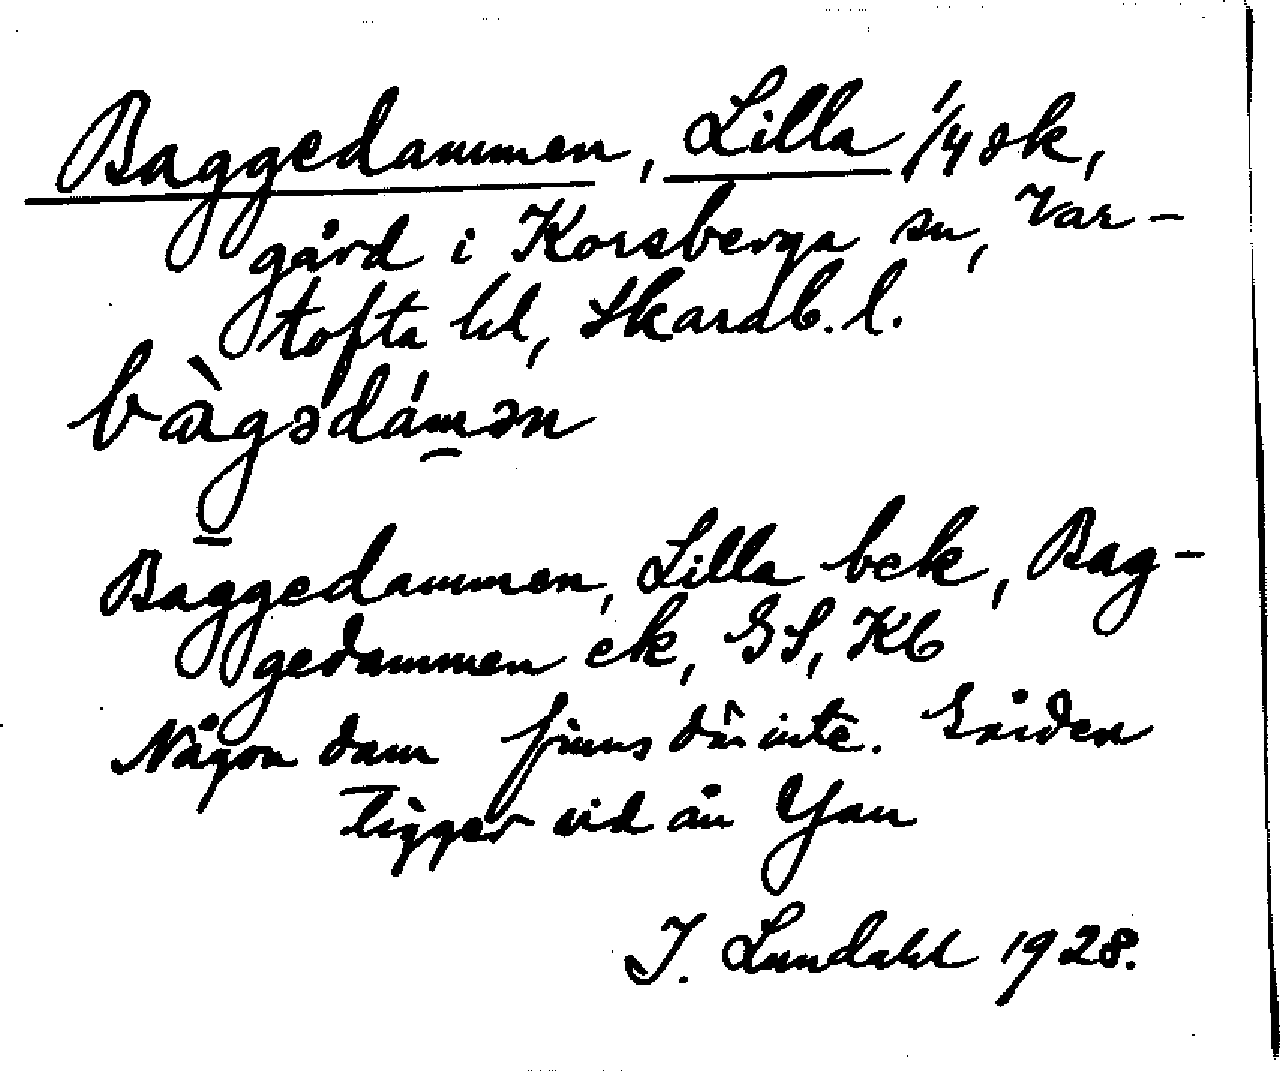 Baggedammen, Lilla 1/4 sk,
gård i Korsberga sn, Var-
tofta hd, Skarab. l.
bàgədámən
Baggedammen, Lilla bek, Bag-
gedammen ek, GS, Kb
Någon dam finns där inte. Gården
ligger vid ån Yan
I. Lundahl 1928.